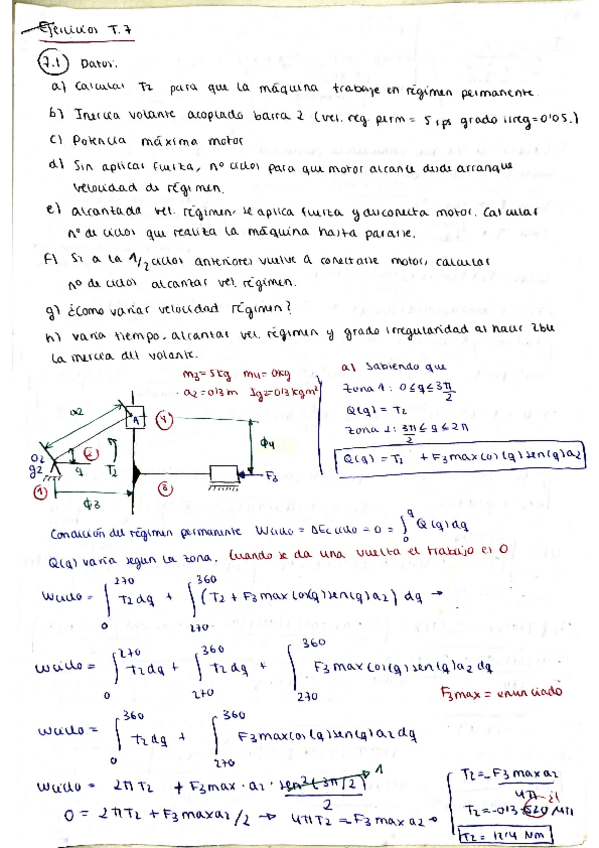 Ejercicios T.7
7.1 Datos:
a) Calcular T2 para que la máquina trabaje en régimen permanente.
b) Inercia volante acoplado barra 2 (vel. reg. perm = 5 rps grado irreg=0'05.)
c) Potencia máxima motor
d) Sin aplicar fuerza, nº ciclos para que motor alcance desde arranque
velocidad de régimen.
e) alcantada vel. régimen. se aplica fuerza y desconecta motor. Calcular
nº de ciclos que realiza la máquina hasta pararse.
f) Si a la 1/2 ciclos anteriores vuelve a conectarse motor, calcular
nº de ciclos alcanzar vel. régimen.
g) ¿Como variar velocidad régimen?
h) varia tiempo. alcanzar vel. régimen y grado irregularidad al hacer
la inercia del volante.
m3= 5kg m4= 0kg
a2= 0'3m Ig2=0'3kgm²
a) Sabiendo que
Zona 1: 0≤q≤3π/2
Q(q) = T2
Zona 2: 3π/2 ≤ q ≤ 2π
Q(q) = T2 + F3max cos(q)sen(q)a2
a2
A
4
O2
g2
2
q
T2
ϕ4
F3
1
3
ϕ3
Condición del régimen permanente Wciclo = ΔEc ciclo = 0 = ∫₀^q Q(q)dq
Q(q) varía según la zona. Cuando se da una vuelta el trabajo es 0
Wciclo = ∫₀^270 T2dq + ∫₂₇₀^360 (T2 + F3max cos(q)sen(q)a2) dq →
Wciclo = ∫₀^270 T2dq + ∫₂₇₀^360 T2dq + ∫₂₇₀^360 F3max cos(q)sen(q)a2dq
F3max = enunciado
Wciclo = ∫₀^360 T2dq + ∫₂₇₀^360 F3max cos(q)sen(q)a2dq
Wciclo = 2πT2 + F3max·a2· sen²(3π/2)/2 1
0 = 2πT2 + F3maxa2/2 → 4πT2 = F3maxa2 →
T2=-F3maxa2/4π
T2=-0'3·520/4π
T2= 12'4 Nm